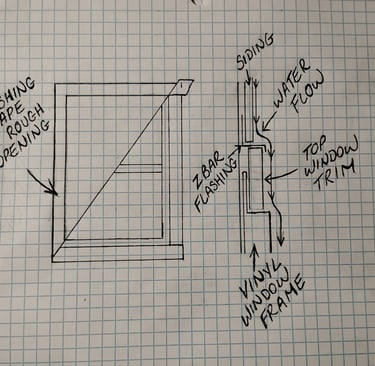 ROUGH
OPENING
SIDING
WATER
FLOW
Z BAR
FLASHING
TOP
WINDOW
TRIM
VINYL
WINDOW
FRAME